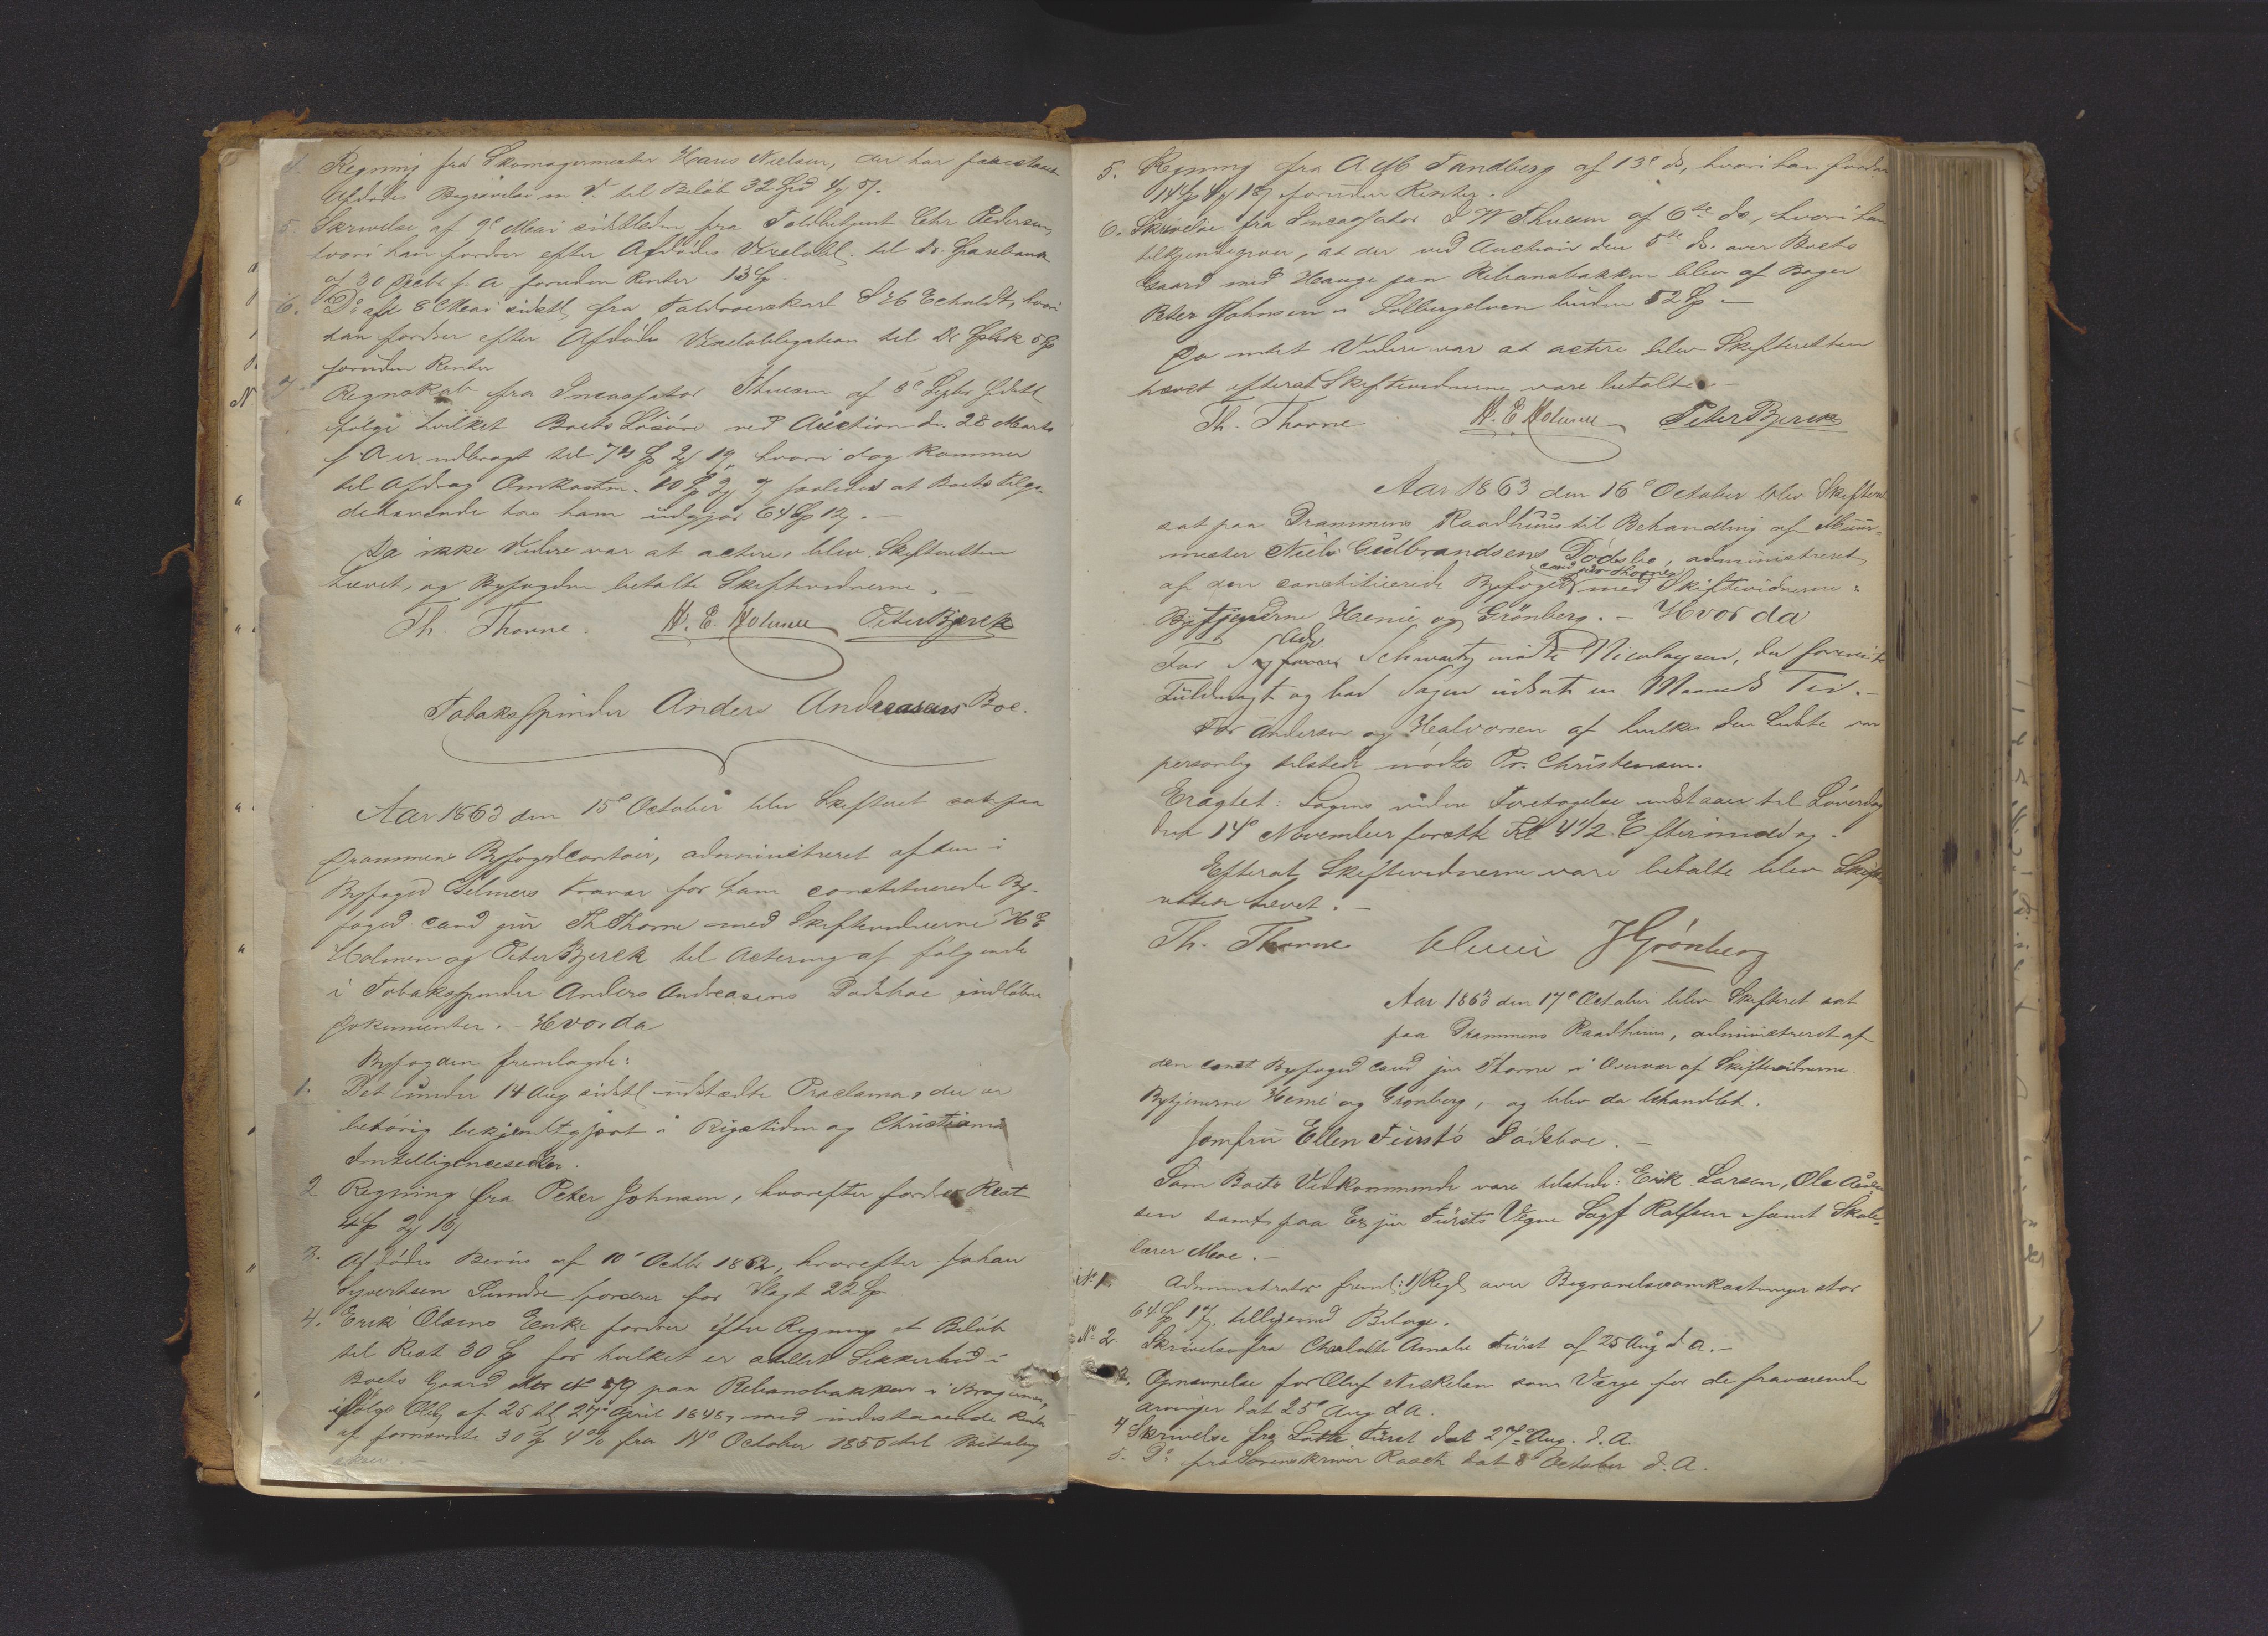 4. Regning fra Skomagermester Hans Nielsen, der har forestaaet
Afdødes Begravelse m. V. til Beløb 32 Spd
5. Skrivelse af 9de Mai sidstleden fra Toldbetjent Chr Pedersen,
hvori han fordrer efter Afdødes Vexelobl. til Dr. Sparebank
af 30 f. A. foruden Renter 13 Sp.
6. Do af 8 Mai sidstl fra Toldroerskarl Echoldt, hvori
han fordrer efter Afdødes Vexelobligation til Dr Spbk 5 Sp
foruden Renter
7. Regnskab fra Incassator Thuesen af 5e Septbr sidstl
ifølge hvilket Boets Løsøre ved Auction d. 28 Marts
f. A er udbragt til 74 Sp 2 19, hvori dog kommer
til Afdrag Omkostn. 10 Sp 2 7 saaledes at Boets Tilgo-
dehavende hos ham udgjør 64 Sp 12.
Da ikke Videre var at actere, blev Skifteretten
hævet, og Byfogden betalte Skiftevidnerne. -
Th. Thorne. H. E. Holmen Peter Bjerck
Tobaksspinder Anders Andreasens Boe.
Aar 1863 den 15de October blev Skifteret sat paa
Drammens Byfogedcontoir, administreret af den i
Byfoged Gelmers Fravær for ham constituerede By-
foged cand jur Th Thorne med Skiftevidnerne H E
Holmen og Peter Bjerck til Actering af følgende
i Tobaksspinder Anders Andreasens Dødsboe indløbne
Dokumenter. - Hvorda
Byfogden fremlagde:
1. Det under 14 Aug sidstl udstædte Proclama, der er
behørig bekjendtgjort i Rigstidn og Christiania
Intelligencesedler.
2 Regning fra Peter Johnsen, hvorefter fordres Rest
4 Sp 2 16
3. Afdødes Beviis af 10de Octbr 1862, hvorefter Johan
Syvertsen Sundre fordrer for Slagt 22 Sp
4. Erik Olsens Enke fordrer efter Regning et Beløb
til Rest 30 Sp for hvilket er stillet Sikkerhed i
Boets Gaard Mtr No 519 paa Rebansbakken i Bragernes,
ifølge Obl. af 26 tl 27de April 1848, med indestaaende Renter
af fornævnte 30 Sp 4% fra 14de October 1855 til Betaling
skeer. -
5. Regning fra A Tandberg af 13de ds, hvori han fordrer
14 Sp 4 18 foruden Renter.
6. Skrivelse fra Incassator Thuesen af 6te ds, hvori han
tilkjendegiver, at der ved Auction den 5te ds. over Boets
Gaard med Hauge paa Rebansbakken blev af Bager
Peter Johnsen i Solbergelven buden 52 Sp -
Da intet Videre var at actere blev Skifteretten
hævet efterat Skiftevidnerne vare betalte. -
Th. Thorne H. E. Holmen Peter Bjerck
Aar 1863 den 16de October blev Skifteret
sat paa Drammens Raadhuus til Behandling af Muur-
mester Niels Gulbrandsens Dødsbo, administreret
af den constituerede Byfoged cand jur Thorne med Skiftevidnerne:
Bytjenerne Hemie og Grönberg. - Hvorda
For Adv. Schwartz mødte Nicolaysen, der foreviste
Fuldmagt og bad Sagen udsat en Maaneds Tid. -
For Andersen og Halvorsen af hvilke den Sidste var
personlig tilstede mødte Pr. Christensen.
Eragtet: Sagens videre Foretagelse udstaaer til Løverdag
den 14de November førstk Kl 4 1/2 Eftermiddag.
Efterat Skiftevidnerne vare betalte blev Skifte-
retten hævet. -
Th. Thorne Hemie J Grönberg
Aar 1863 den 17de October blev Skifteret sat
paa Drammens Raadhuus, administreret af
den const Byfoged cand jur Thorne i Overvær af Skiftevidnerne
Bytjenerne Hemie og Grönberg, - og blev da behandlet.
Jomfru Ellen Fürst's Dødsboe. -
Som Boets Vedkommende vare tilstede: Erik Larsen, Ole
sen samt paa Ex jur Fürsts Vegne Sagf Rolfsen - samt Skole-
lærer Moe. -
No 1. Administrator freml: 1) Regl over Begravelsesomkostninger stor
64 Sp 17, tilligemed Bilage.
No 2 Skrivelse fra Charlotte Amalie Fürst af 25 Aug d. A. -
3. Opnævnelse for Oluf Niskelan som Værge for de fraværende
Arvinger dat 25de Aug d A.
4 Skrivelse fra Lotte Fürst dat 27de Aug. d. A.
5. Do fra Sorenskriver Rasch dat 8de October d. A.